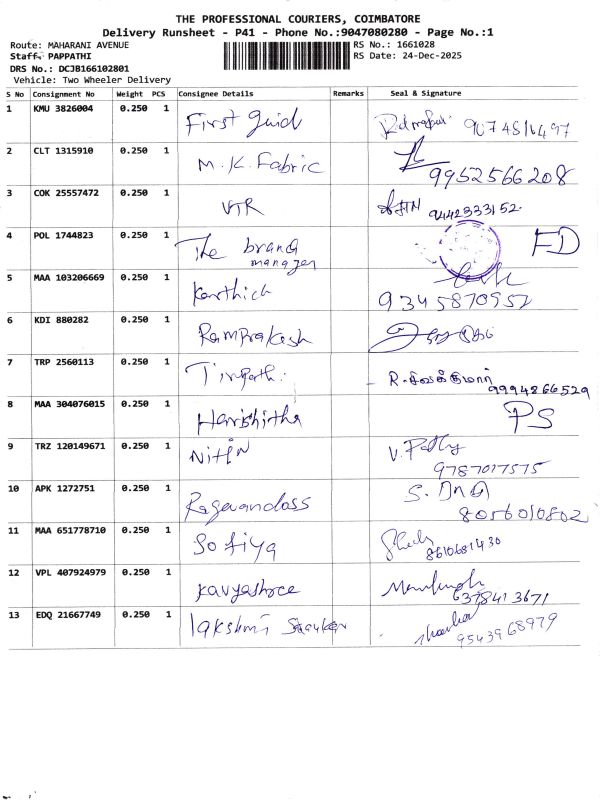 THE PROFESSIONAL COURIERS, COIMBATORE
Delivery Runsheet - P41 - Phone No.:9047080280 - Page No.:1
Route: MAHARANI AVENUE RS No.: 1661028
Staff: PAPPATHI RS Date: 24-Dec-2025
DRS No.: DCJB166102801
Vehicle: Two Wheeler Delivery
S No Consignment No Weight PCS Consignee Details Remarks Seal & Signature
1 KMU 3826004 0.250 1 First guid
2 CLT 1315910 0.250 1 M.K. Fabric 9952566208
3 COK 25557472 0.250 1 VTR 9442333152
4 POL 1744823 0.250 1 The brang manager FD
5 MAA 103206669 0.250 1 Karthick 9345870952
6 KDI 880282 0.250 1 Ramprakash
7 TRP 2560113 0.250 1 Tirupathi R. சிவக்குமார் 9994866529
8 MAA 304076015 0.250 1 Harishitha PS
9 TRZ 120149671 0.250 1 Nithin V. Pathy 9787017575
10 APK 1272751 0.250 1 Ragavandass 8056010802
11 MAA 651778710 0.250 1 Sofiya 8610681430
12 VPL 407924979 0.250 1 Kavyashree 6378413671
13 EDQ 21667749 0.250 1 lakshmi Shankar 9543968979